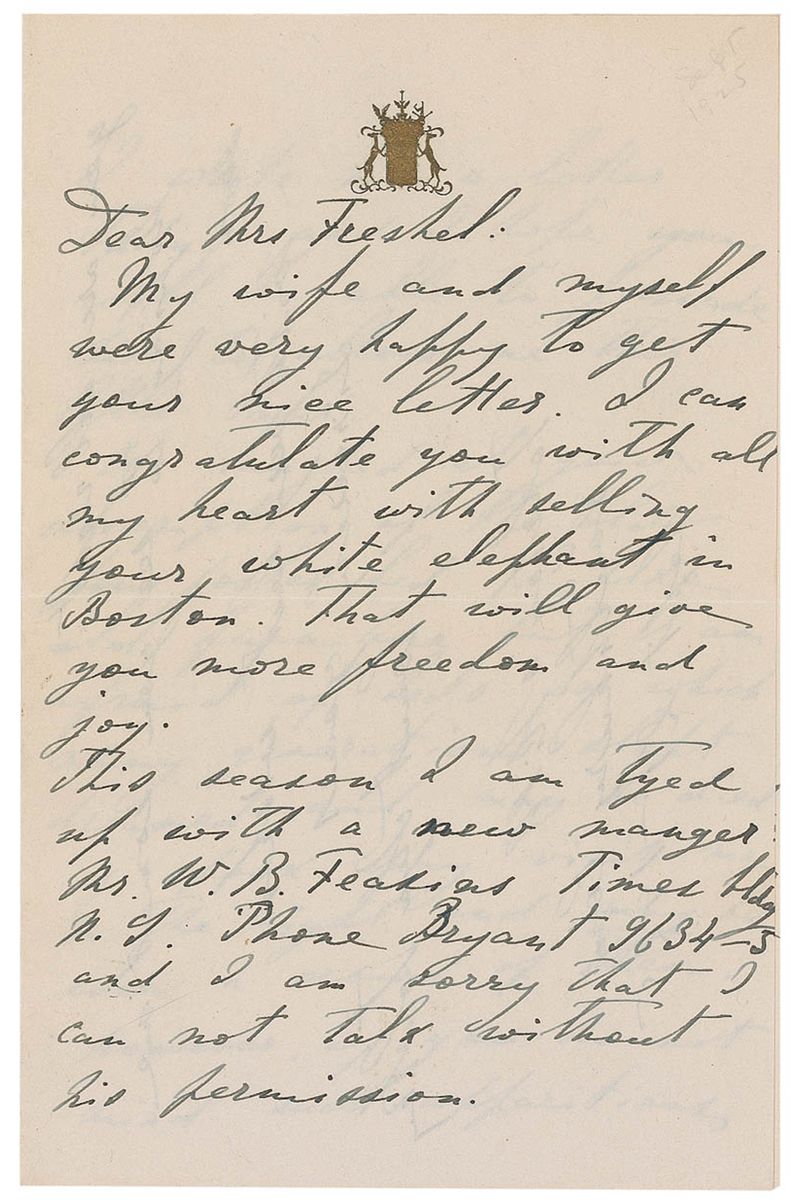 Dear Mrs Freshel:
My wife and myself
were very happy to get
your nice letter. I can
congratulate you with all
my heart with selling
your white elephant in
Boston. That will give
you more freedom and
joy.
This season I am Tyed
up with a new manger:
Mr. W. B. Feakins Times bldg
N. Y. Phone Bryant 9634-5
and I am sorry that I
can not talk without
his permission.